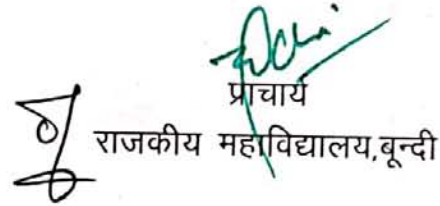 प्राचार्य
राजकीय महाविद्यालय,बून्दी